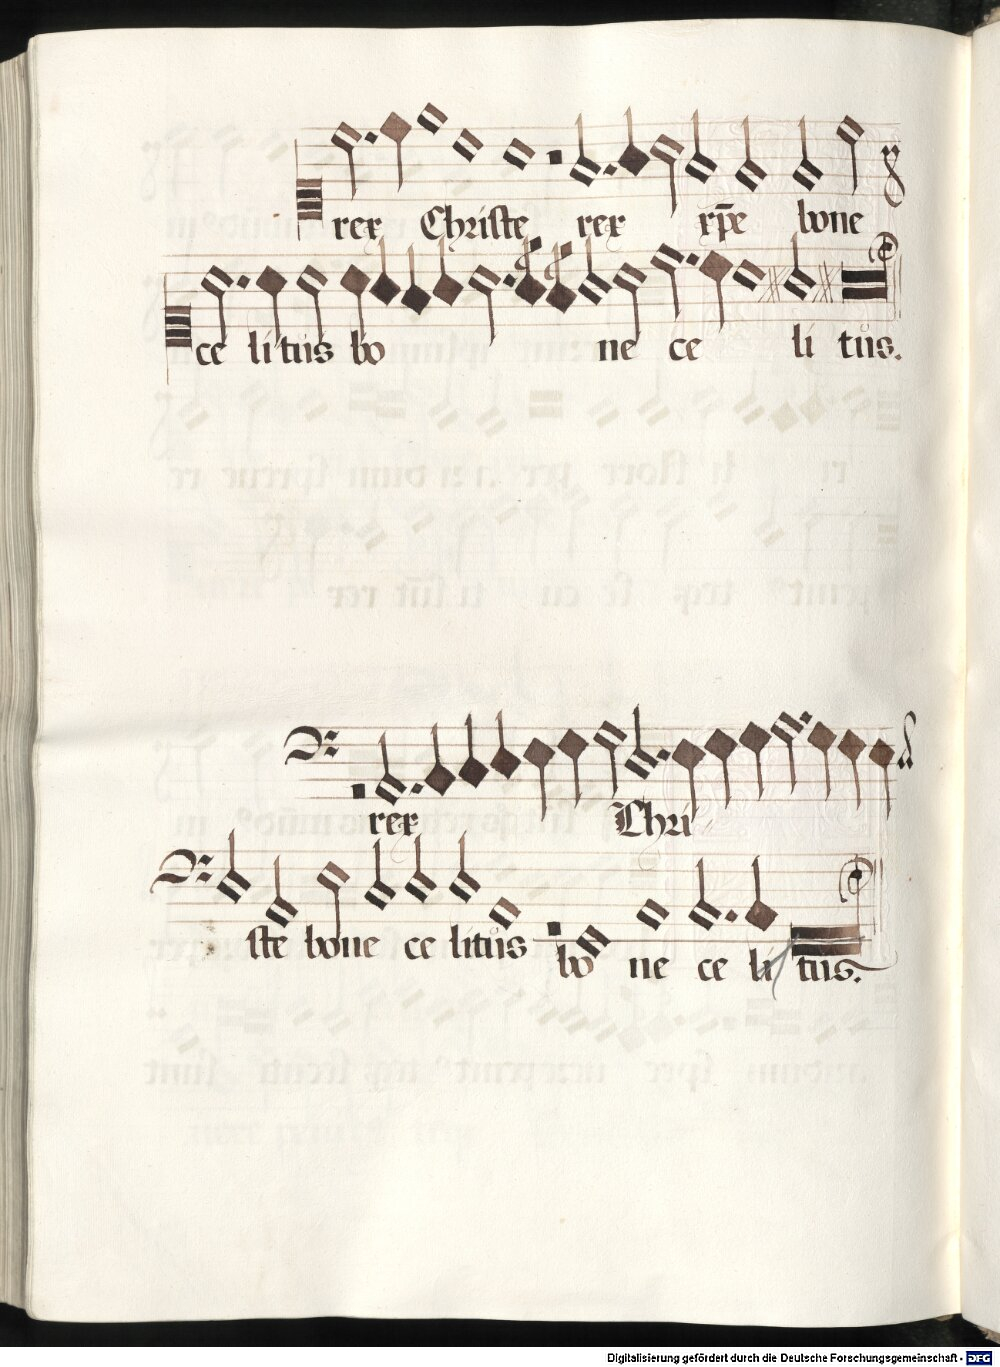 rex Christe rex xp̄e bone
ce li tus bo ne ce li tus.
rex Chri
ste bone ce litus bo ne ce li tus.
Digitalisierung gefördert durch die Deutsche Forschungsgemeinschaft - DFG